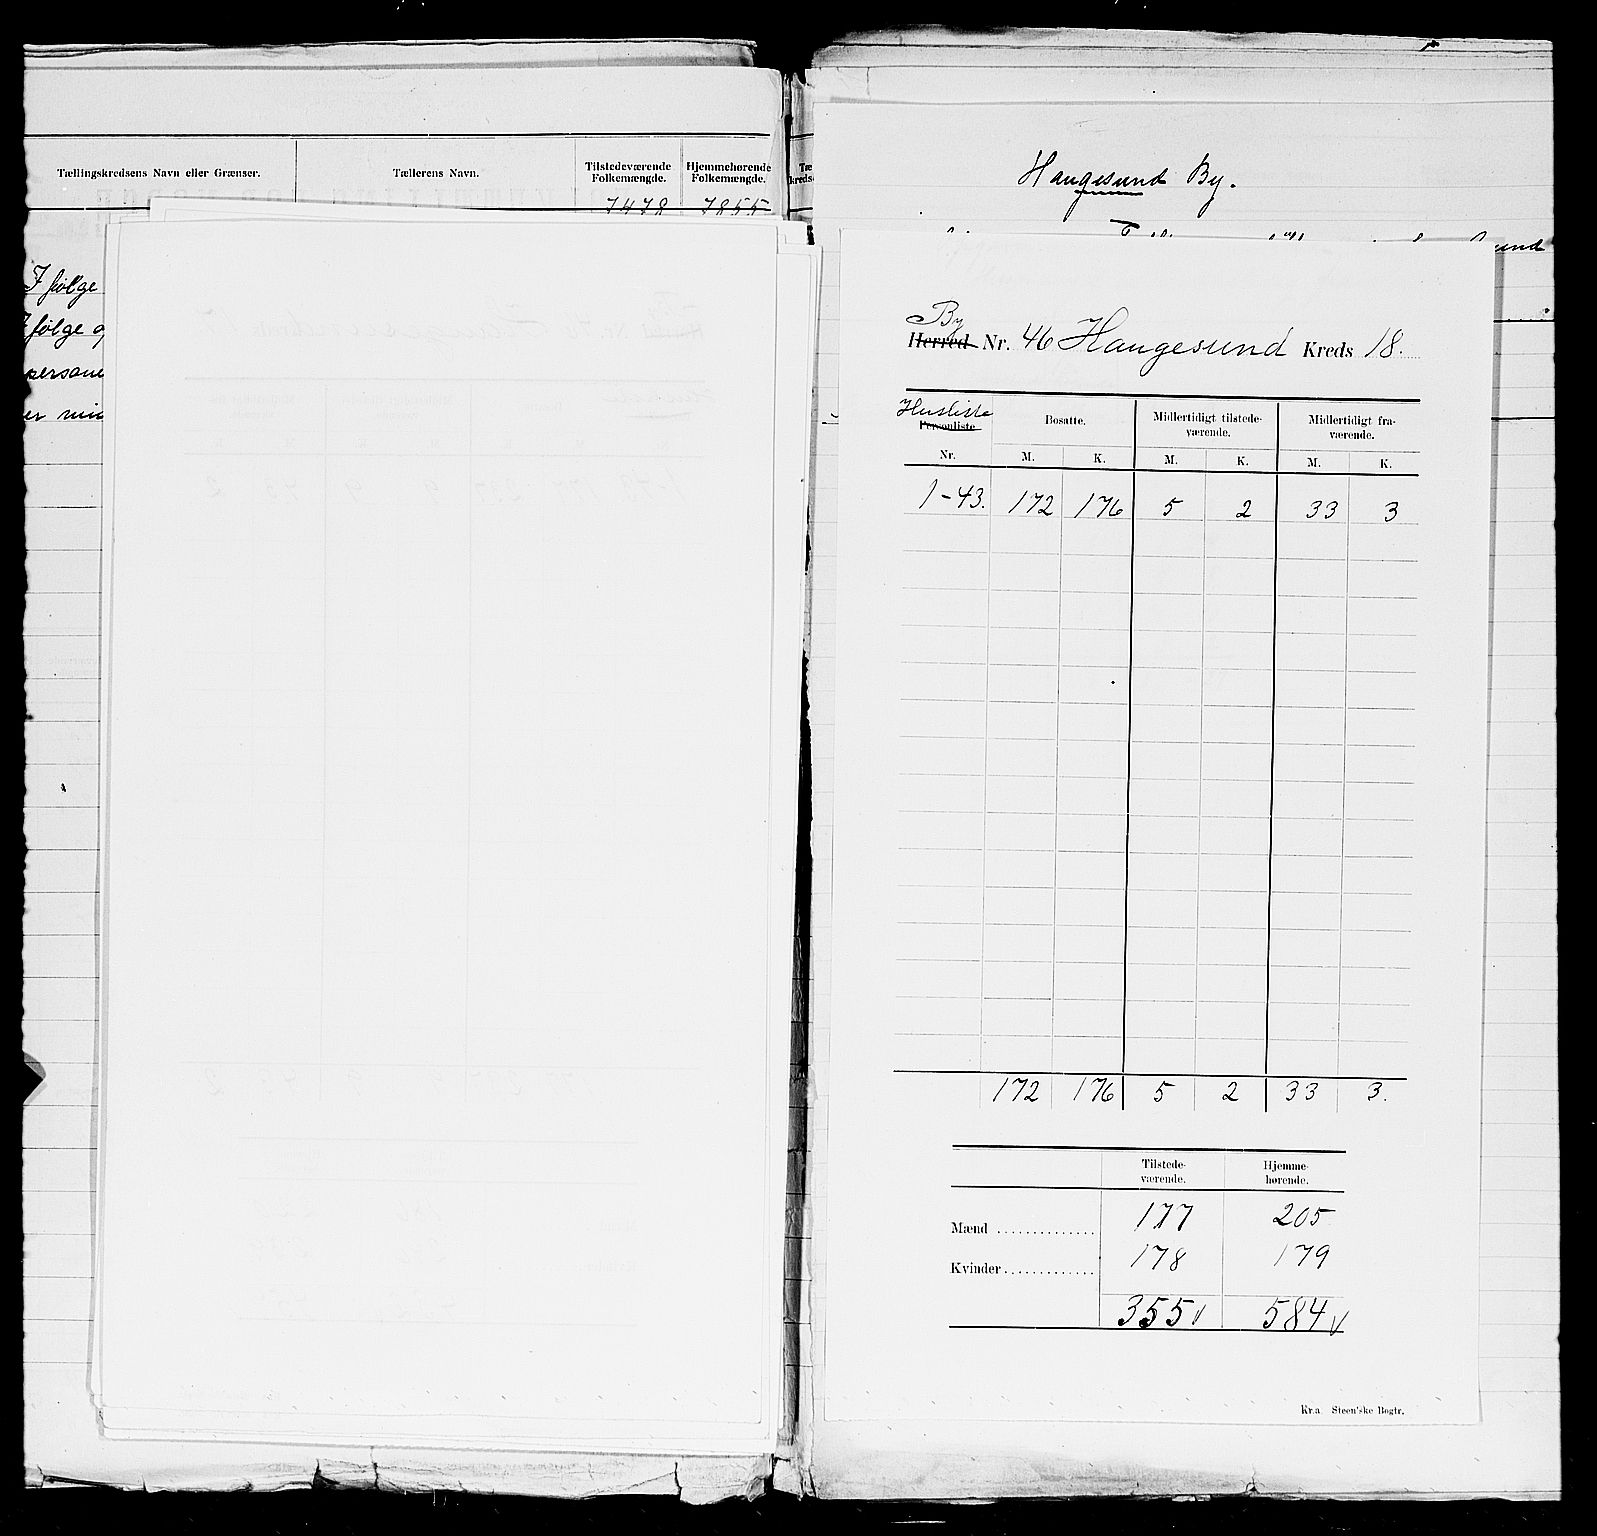 Tællingskredsens Navn eller Grænser. Tællerens Navn. Tilstedeværende Folkemængde. Hjemmehørende Folkemængde.
7478 7855
I følge
følge
persone
er
Haugesund By.
By
Herred Nr. 46 Haugesund Kreds 18.
Husliste
Personliste Bosatte. Midlertidigt tilstedeværende. Midlertidigt fraværende.
Nr. M. K. M. K. M. K.
1-43. 172 176 5 2 33 3
172 176 5 2 33 3.
Tilstede- Hjemme-
værende. hørende.
Mænd .............. 177 205
Kvinder ............. 178 179
355 584
Kr.a. Steen'ske Bogtr.